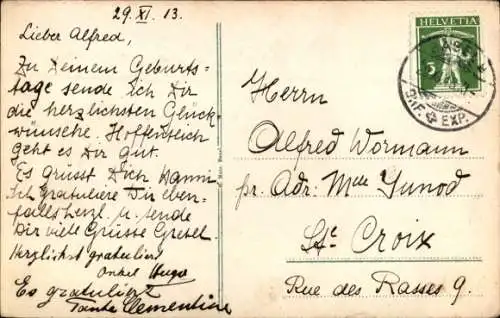 29. XI. 13.
Lieber Alfred,
Zu Deinem Geburts=
tage sende ich Dir
die herzlichsten Glück
wünsche. Hoffentlich
geht es Dir gut.
Es grüsst Dich Hanni
Ich gratuliere Dir eben-
falls herzl. u. sende
Dir viele Grüsse Gretel.
Herzlichst gratuliert
Onkel Hugo
Es gratuliert
Tante Clementine
HELVETIA
5
BASEL
BRF. EXP.
Herrn
Alfred Wormann
pr. Adr: Mlle Junod
Ste Croix
Rue des Rasses 9.